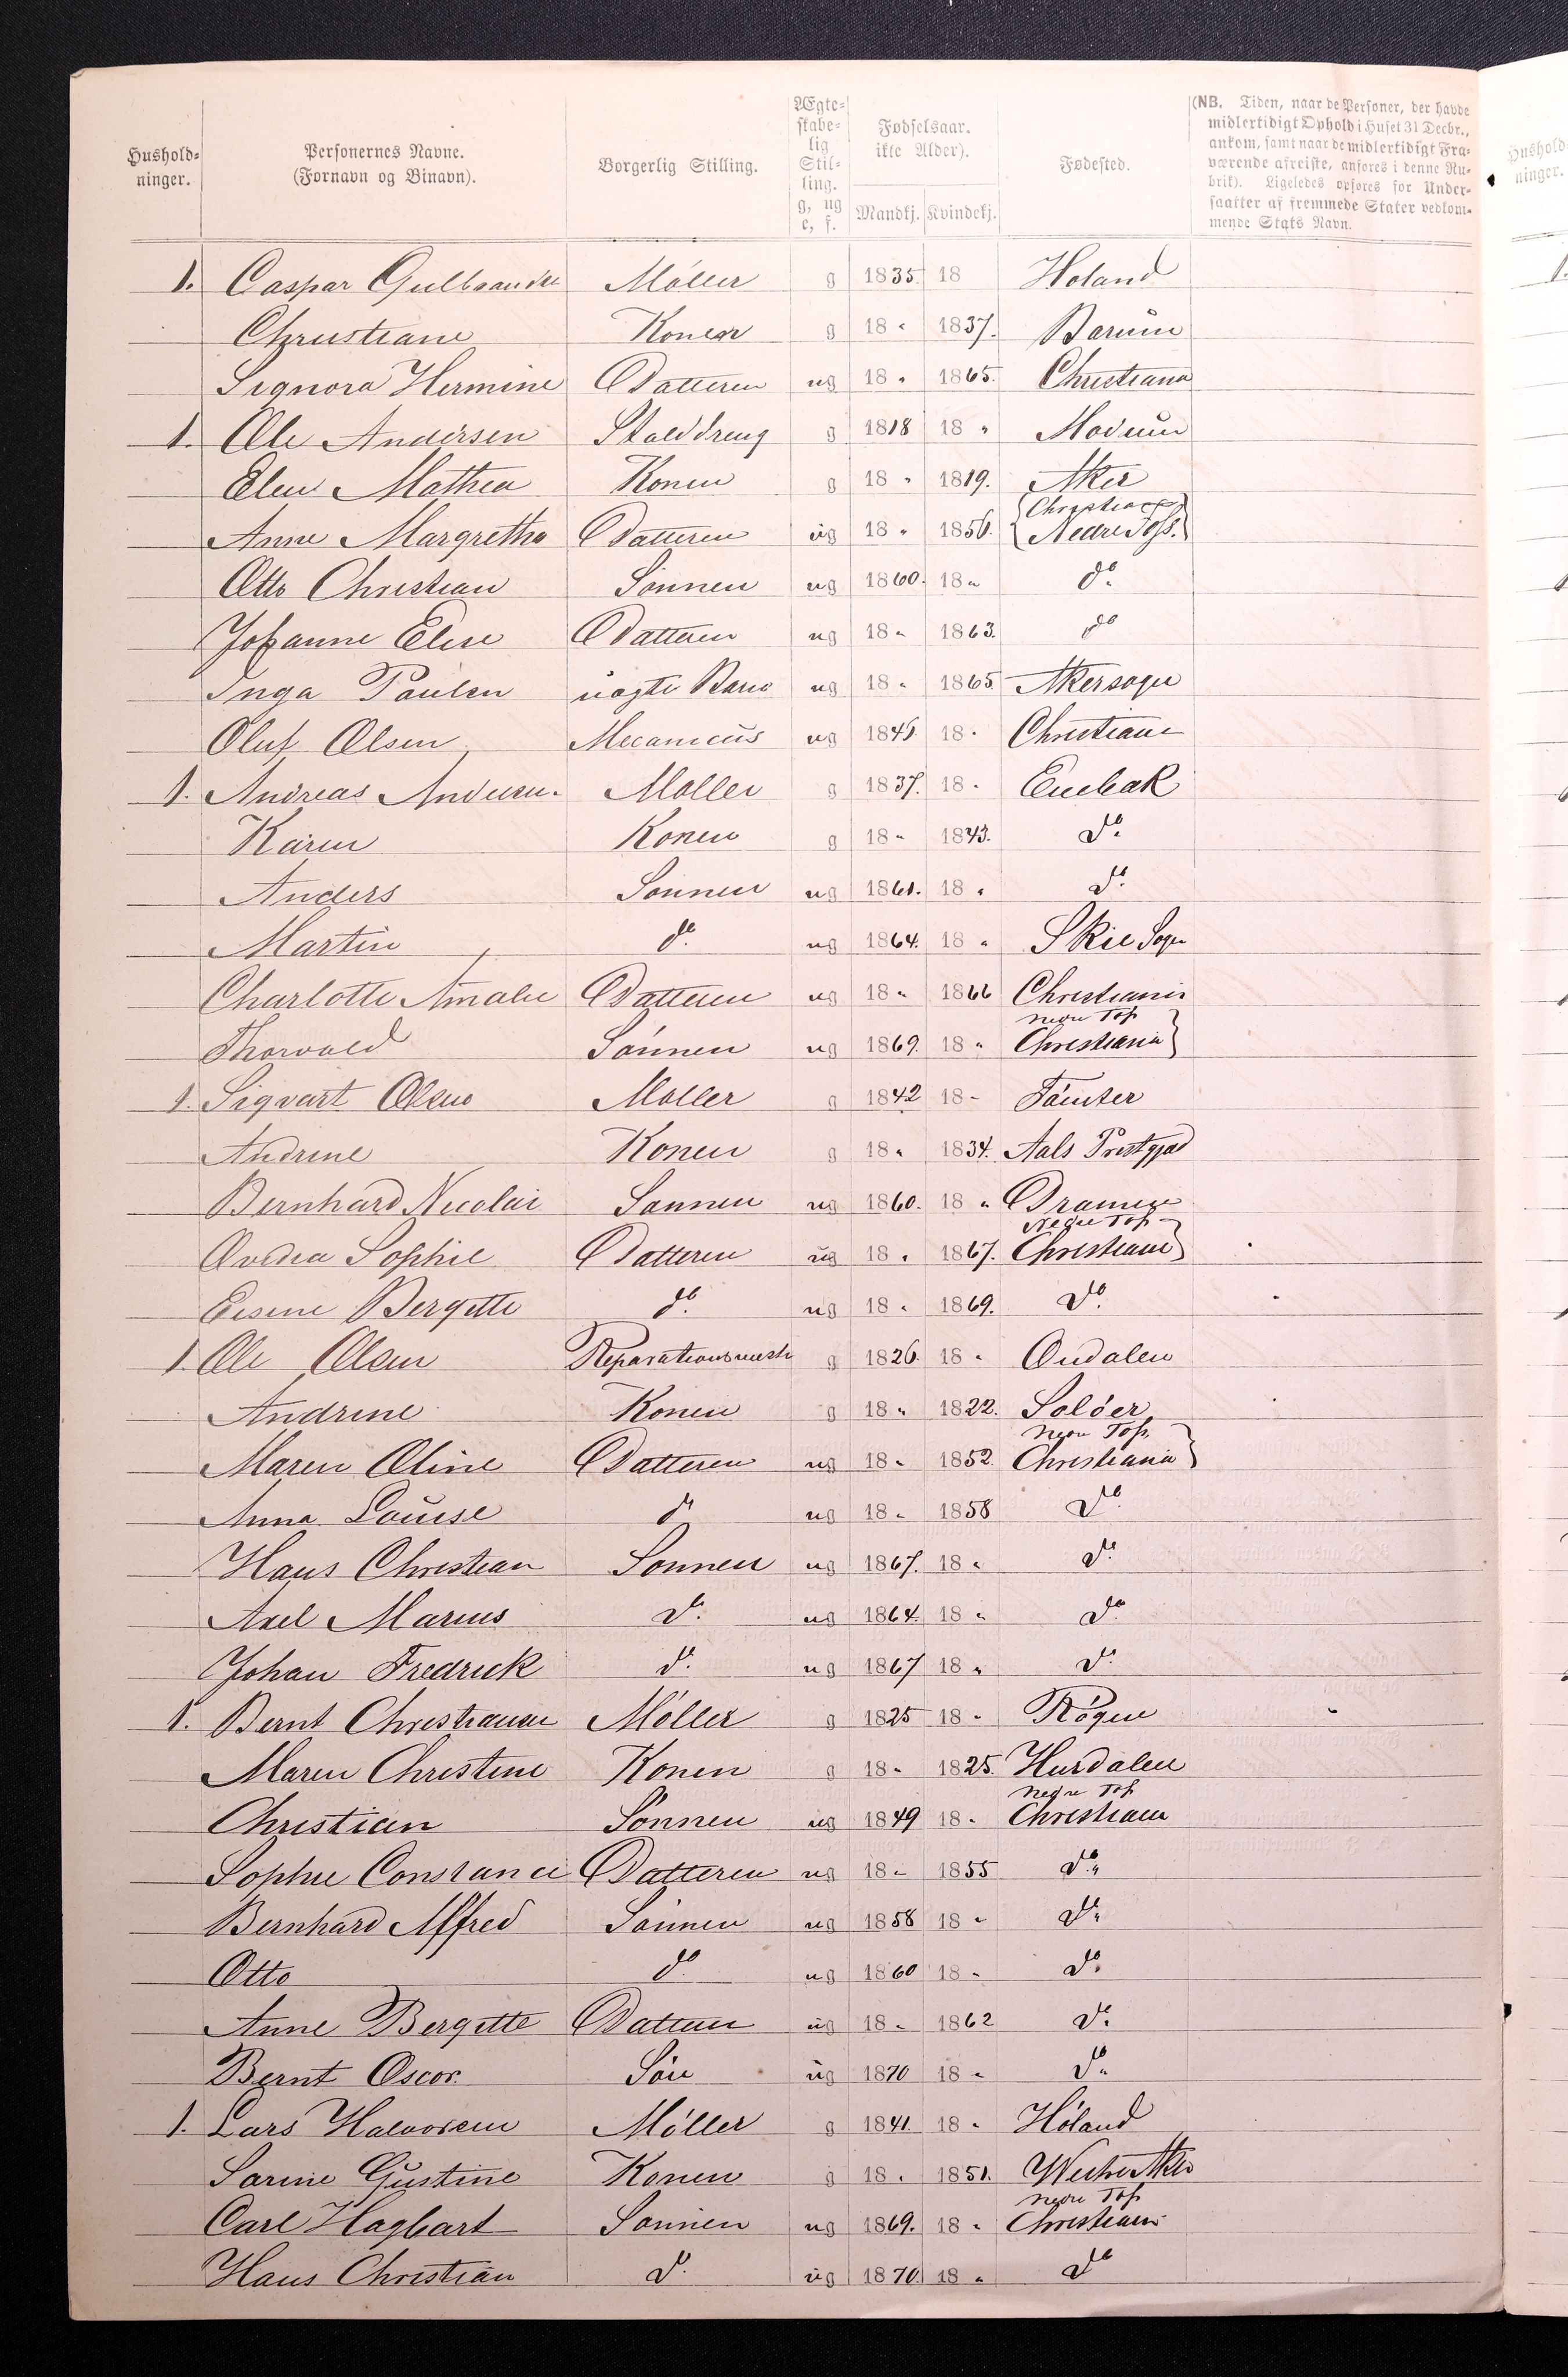 Hushold-
ninger.
Personernes Navne.
(Fornavn og Binavn).
Borgerlig Stilling.
Ægte-
skabe-
lig
Stil-
ling.
g, ug
e, f.
Fødselsaar.
ikke Alder).
Mandkj. Kvindekj.
Fødested.
(NB. Tiden, naar de Personer, der havde
midlertidigt Ophold i Huset 31 Decbr.,
ankom, samt naar de midlertidigt Fra-
værende afreiste, anføres i denne Ru-
brik). Ligeledes opføres for Under-
saatter af fremmede Stater vedkom-
mende Stats Navn.
1. Caspar Gulbrandse Møller g 1835 18 Høland
Christiane Konen g 18 " 1837. Barum
Signora Hermine Datteren ug 18 " 1865. Christiana
1. Ole Andersen Stalddreng g 1818 18 " Modum
Elen Mathea Konen g 18 " 1819. Aker
Anne Margrethe Datteren ug 18 " 1856. Christiania Nedre Foss.
Otto Christian Sønnen ug 1860. 18 " do.
Johanne Elise Datteren ug 18 " 1863. do
Inga Paulsen uægte Barn ug 18 " 1865 Akersogn
Oluf Olsen Mecanicus ug 1845 18 " Christiane
1. Andreas Andersen. Møller g 1837. 18 " Enebak
Karen Konen g 18 " 1843. do.
Anders Sønnen ug 1861. 18 " do.
Martin do. ug 1864. 18 " Skie Sogn
Charlotte Amalie Datteren ug 18 " 1866 Christiania
Thorvald Sønnen ug 1869. 18 " nedre Fos Christiania
1. Sigvart Olsen Møller g 1842 18 "
Andrine Konen g 18 " 1834. Aals Prestgjad
Bernhard Nicolai Sønnen ug 1860. 18 " Dramen
Ovedia Sophie Datteren ug 18 " 1867. Nedre Fos Christiane
Bergitte do. ug 18 " 1869. do.
1. Ole Olsen Reparationsmest g 1826. 18 " Oudalen
Andrine Konen g 18 " 1822. Soløer
Maren Oline Datteren ug 18 " 1852. nedre Fos. Christiania
Anna Louise do ug 18 " 1858 do
Hans Christian Sønnen ug 1867. 18 " do.
Axel Marius do. ug 1864. 18 " do
Johan Fredrick do. ug 1867 18 " do
1. Bernt Christiansen Møller g 1825 18 " Røgen
Maren Christine Konen g 18 " 1825. Hurdalen
Christian Sønnen ug 1849 18 " nedre Fos Christiania
Sophie Constance Datteren ug 18 " 1855 do.
Bernhard Alfred Sønnen ug 1858 18 " do.
Otto do ug 1860 18 " do.
Anne Bergitte Datteren ug 18 " 1862 do.
Bernt Oscar. Søn ug 1870 18 " do.
1. Lars Halvorsen Møller g 1841. 18 " Høland
Sarine Gustine Konen g 18 " 1851. Westre Aker
Carl Hagbart Sønnen ug 1869. 18 " nedre Fos Christiania
Hans Christian do. ug 1870 18 " do